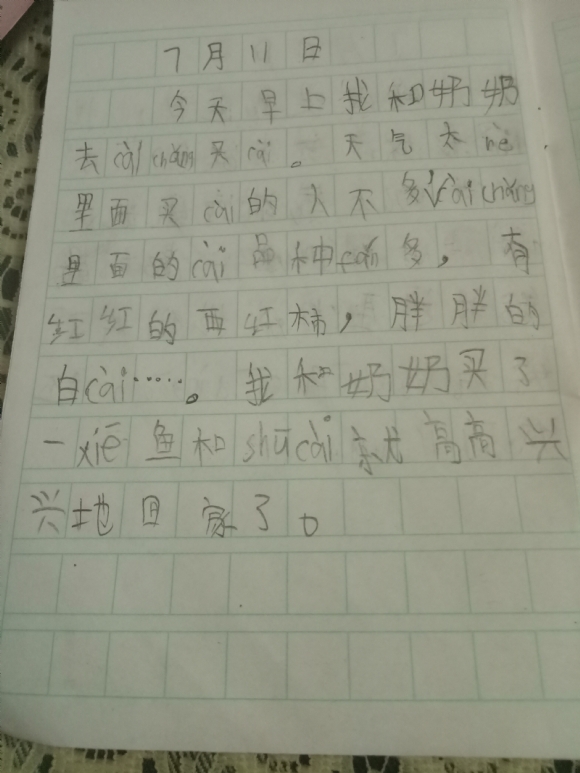 7月11日
今天早上我和奶奶
去cài chǎng买cài。天气太rè
里面买cài的人不多，cài chǎng
里面的cài品种 多，有
红红的西红柿，胖胖的
白cài……。我和奶奶买了
一xiē鱼和shū cài就高高兴
兴地回家了。